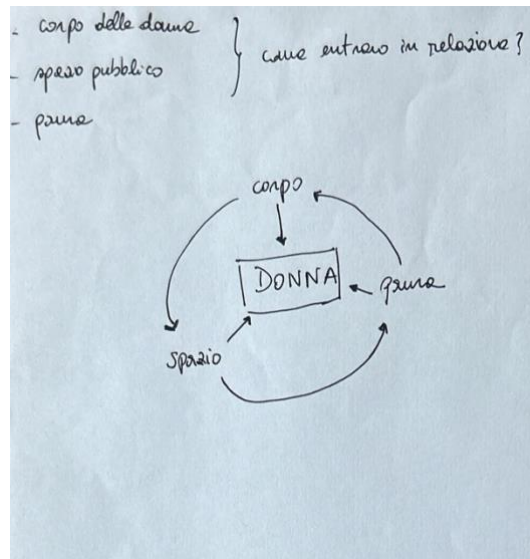 - corpo delle donne
- spazio pubblico
- paura
come entrano in relazione?
corpo
DONNA
paura
spazio